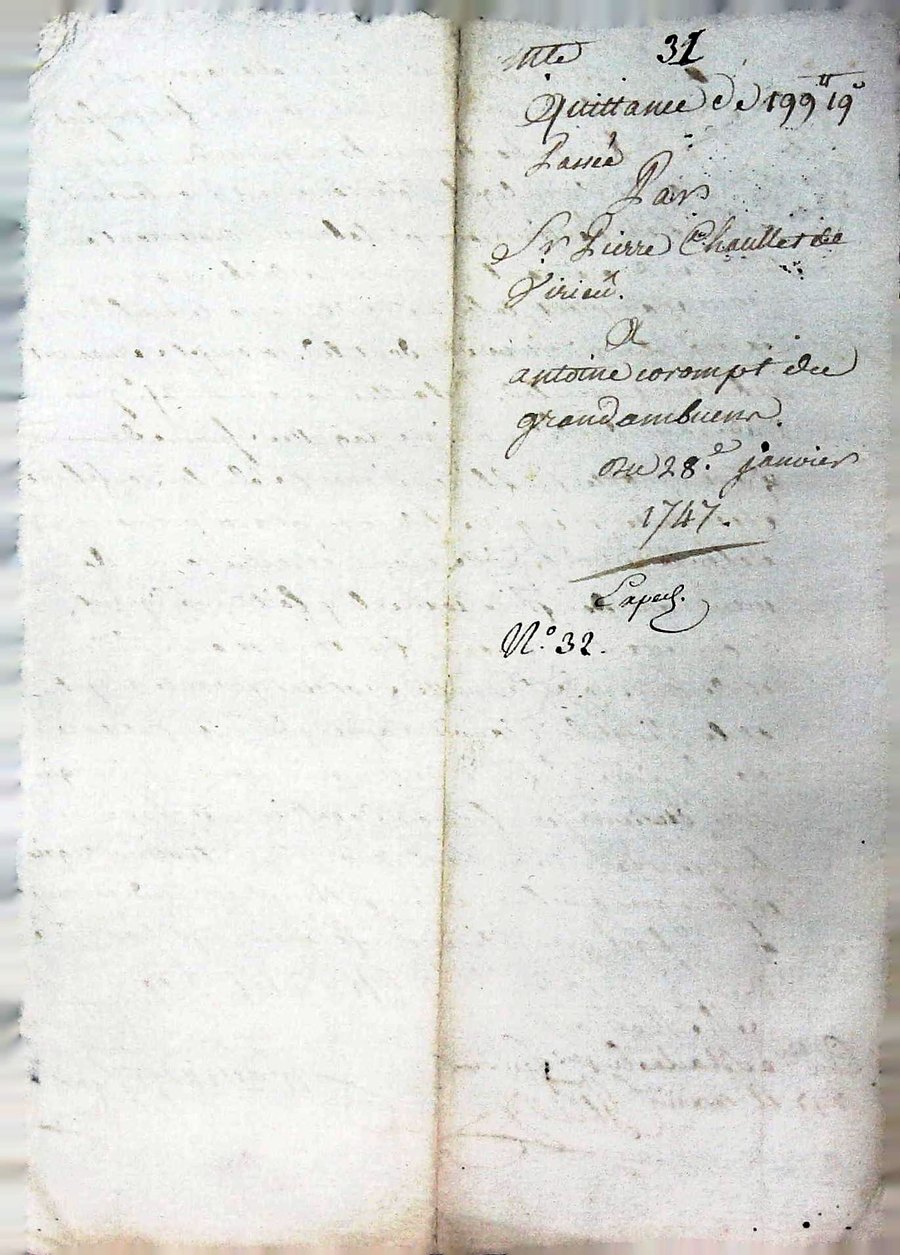 31
Quittance de 199ᵗᵗ 19ˢ
Passée
Par
Sr Pierre Chaullet de
Virieu.
A
antoine corompt du
grand ambuens.
Du 28.e janvier
1747.
N.o 32.